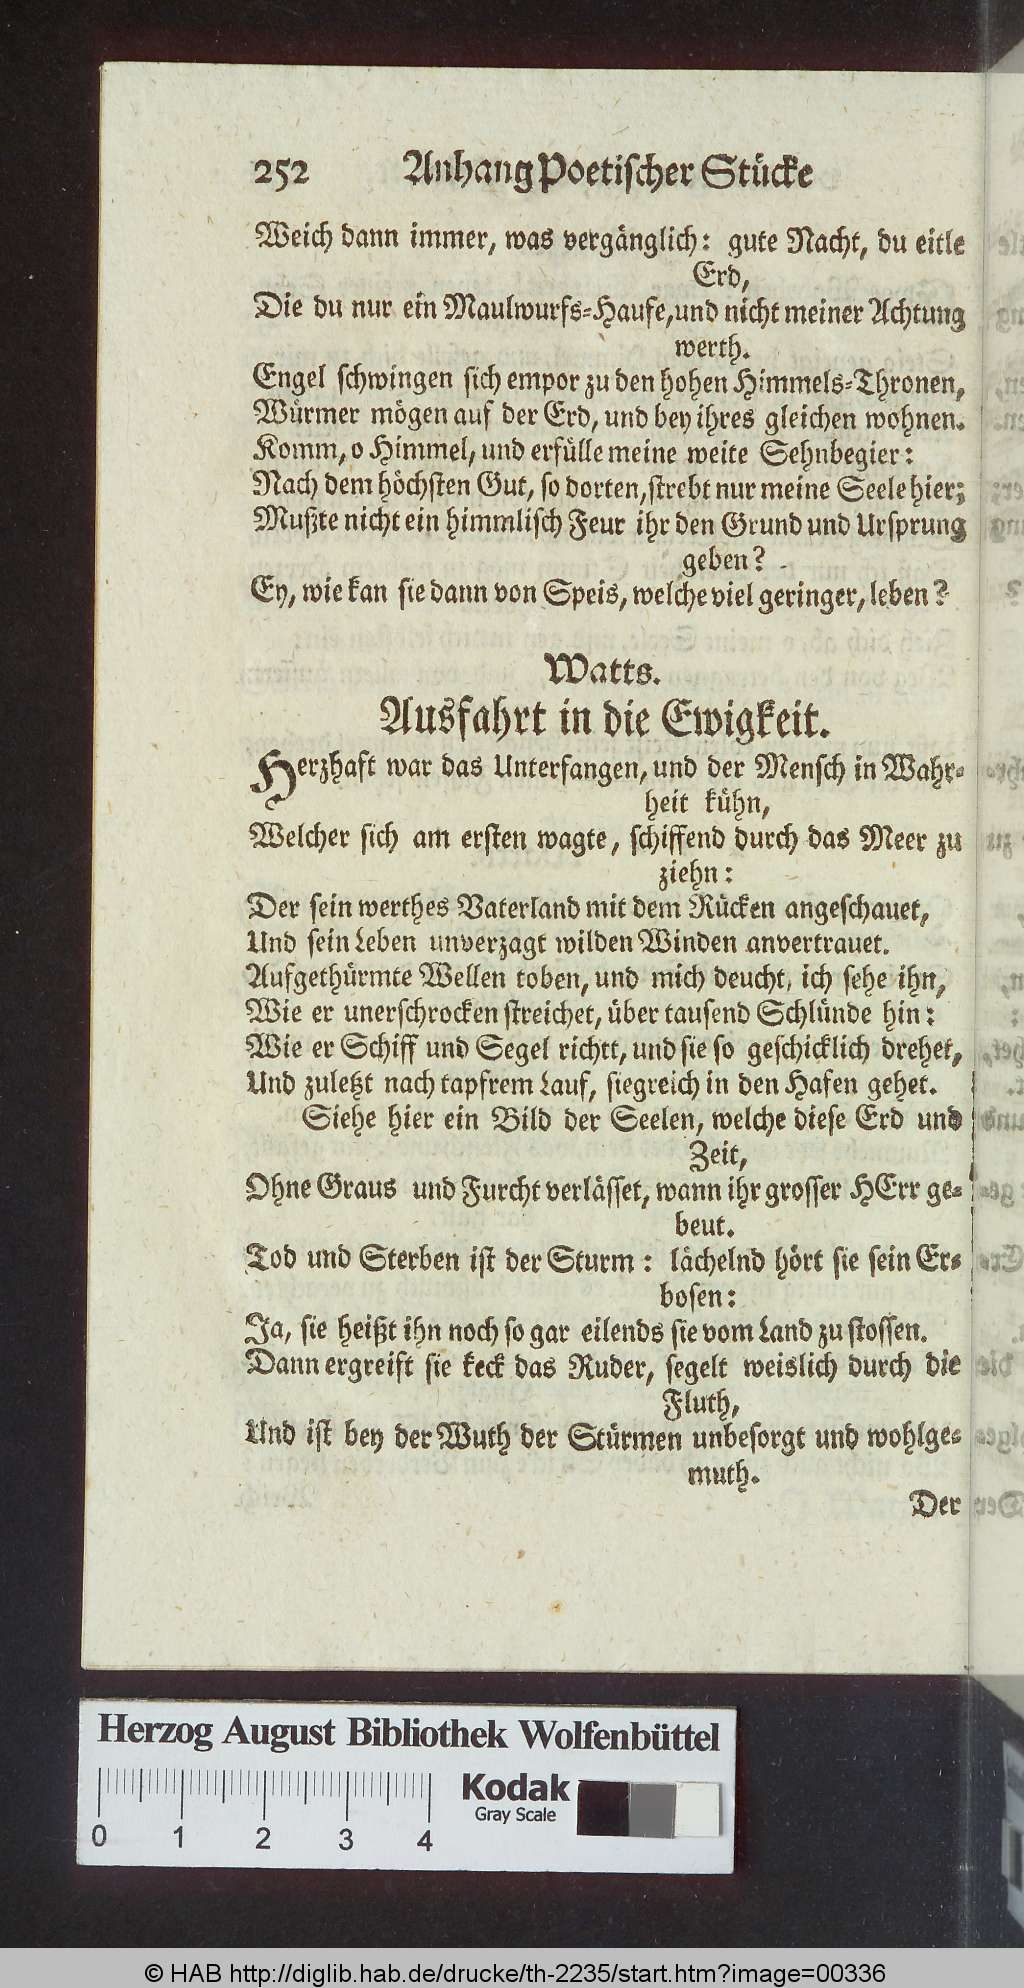 252 Anhang Poetischer Stücke
Weich dann immer, was vergänglich: gute Nacht, du eitle
Erd,
Die du nur ein Maulwurfs-Haufe, und nicht meiner Achtung
werth.
Engel schwingen sich empor zu den hohen Himmels-Thronen,
Würmer mögen auf der Erd, und bey ihres gleichen wohnen.
Komm, o Himmel, und erfülle meine weite Sehnbegier:
Nach dem höchsten Gut, so dorten, strebt nur meine Seele hier;
Mußte nicht ein himmlisch Feur ihr den Grund und Ursprung
geben?
Ey, wie kan sie dann von Speis, welche viel geringer, leben?
Watts.
Ausfahrt in die Ewigkeit.
Herzhaft war das Unterfangen, und der Mensch in Wahr-
heit kühn,
Welcher sich am ersten wagte, schiffend durch das Meer zu
ziehn:
Der sein werthes Vaterland mit dem Rücken angeschauet,
Und sein Leben unverzagt wilden Winden anvertrauet.
Aufgethürmte Wellen toben, und mich deucht, ich sehe ihn,
Wie er unerschrocken streichet, über tausend Schlünde hin:
Wie er Schiff und Segel richtt, und sie so geschicklich drehet,
Und zuletzt nach tapfrem Lauf, siegreich in den Hafen gehet.
Siehe hier ein Bild der Seelen, welche diese Erd und
Zeit,
Ohne Graus und Furcht verlässet, wann ihr grosser HErr ge-
beut.
Tod und Sterben ist der Sturm: lächelnd hört sie sein Er-
bosen:
Ja, sie heißt ihn noch so gar eilends sie vom Land zu stossen.
Dann ergreift sie keck das Ruder, segelt weislich durch die
Fluth,
Und ist bey der Wuth der Stürmen unbesorgt und wohlge-
muth.
Der
Herzog August Bibliothek Wolfenbüttel
Kodak
Gray Scale
0 1 2 3 4
© HAB http://diglib.hab.de/drucke/th-2235/start.htm?image=00336